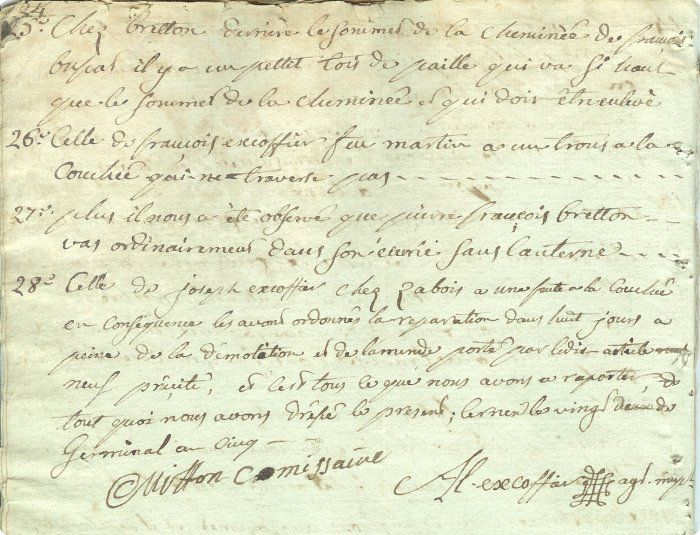 25.° Chez bretton derriere le sommet de la cheminée de françois
buscat il y a un pettit tois de paille qui va si haut
que le sommet de la cheminée et qui doit être enlevé
26.° Celle de françois excoffier fu martin a un trous a la
Couchée qui ne traverse pas
27.° plus il nous a été observé que pierre françois bretton
vas ordinairement dans son écurie sans lanterne
28.° Celle de joseph excoffier chez a une fente a la Couchée
en conséquence les avons ordonnés la reparation dans huit jours a
peine de la démolation et de lamende portée par ledit article
neuf précité, et cest tous ce que nous avons a raporter, de
tout quoi nous avons dréssé le present; cernex le vingt deux de
Germinal an Cinq
Mitton Comissaire
Al. excoffier agt. mupl